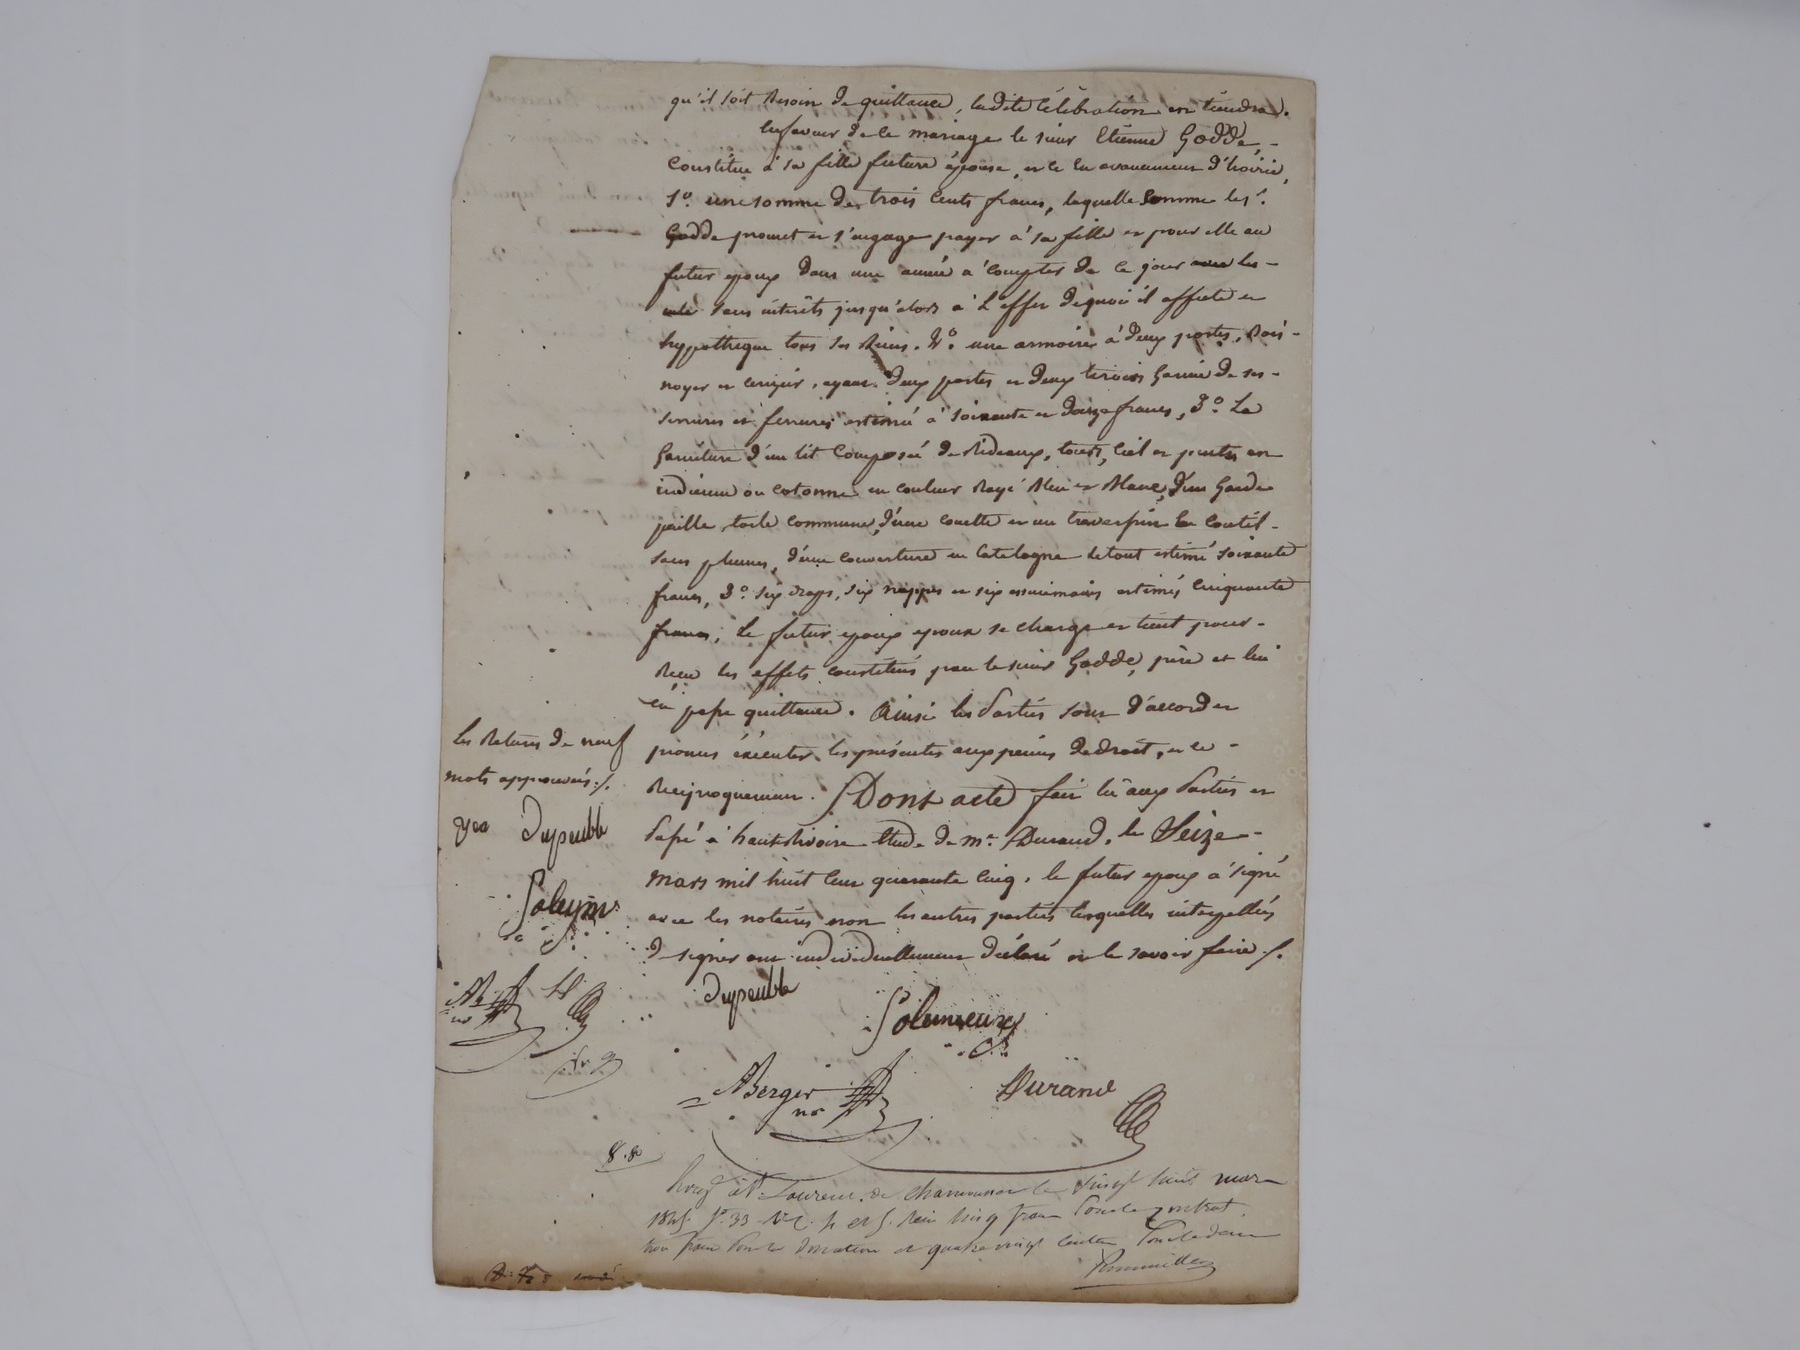 qu'il soit besoin de quittance, ladite célébration en tiendra.
En faveur de ce mariage le sieur Etienne Godde,
Constitue à sa fille future épouse, et ce en avancement d'hoirie,
1º. une somme de trois Cents francs, laquelle Somme le sʳ.
Godde promet et s'engage payer à sa fille et pour elle au
futur epoux dans une année à compter de ce jour
sans intérêts jusqu'alors à L'effet de quoi il affecte et
hypothèque tous ses biens. 2º. une armoire à deux portes, bois
noyer et cerizier, ayant deux portes et deux tiroirs Garnie de ses
serrures et ferrures estimé à soixante et douze francs, 3º. La
Garniture d'un lit Composé de Rideaux, tours, Ciel et pentes en
indienne ou cotonne en couleur Rayé bleu et blanc, d'un Garde
paille, toile commune, d'une couette et un traversin en Coutil
sans plumes, d'une couverture en Catalogne le tout estimé soixante
francs, 3º. six draps, six nappes et six essuimains estimés Cinquante
francs, Le futur epoux epoux se charge et tient pour
Recu les effets constitués par le sieur Godde, père et lui
en passe quittance. Ainsi les Parties sont d'accord et
promis éxécuter les présentes aux peines de droit, et ce
Reciproquement. Dont acte fait lû aux Parties et
Passé à haut Rivoire Etude de mᵉ. Durand, le Seize
Mars mil huit Cent quarante Cinq, le futur epoux à signé
avec les notaires non les autres parties lesquelles interpellées
de signer ont individuellement déclaré ne le savoir faire ./.
les Ratures de neuf
mots approuvés ./.
Dupeuble
Dupeuble
Solemieux
Berger
nʳᵉ
Durand
8.80
Enreg. à Sᵗ. Laurent de Chamousset le vingt huit mars
1845. fº. 33 Vº C. 4 et 5. Reçu cinq francs pour le contrat,
trois francs pour la donation et quatre vingt centimes pour le décime